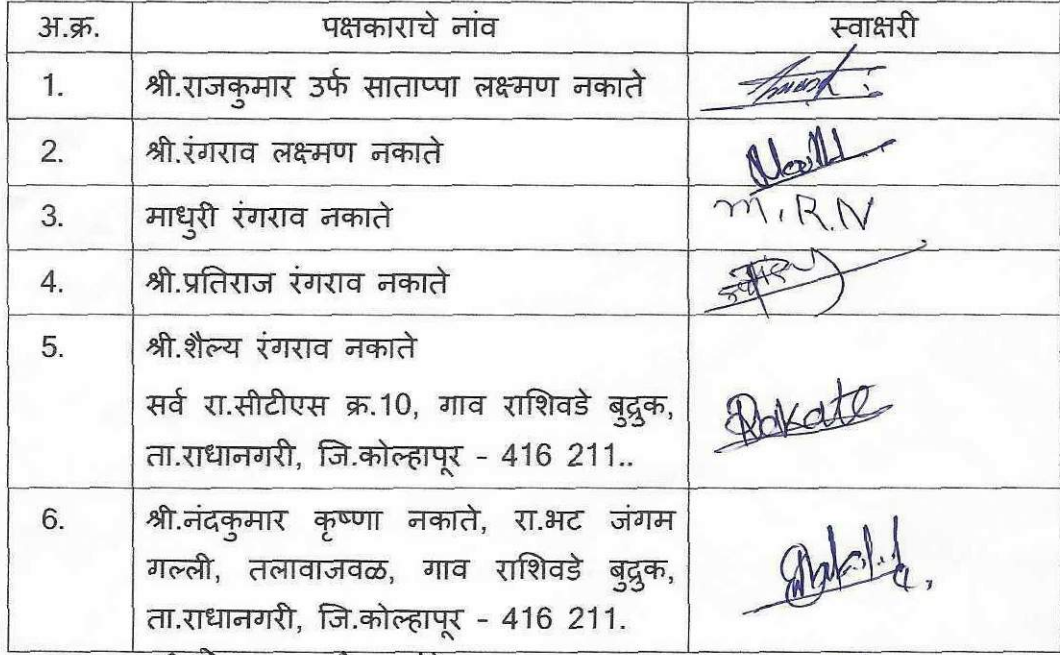 अ.क्र. पक्षकाराचे नांव स्वाक्षरी
1. श्री.राजकुमार उर्फ साताप्पा लक्ष्मण नकाते
2. श्री.रंगराव लक्ष्मण नकाते
3. माधुरी रंगराव नकाते M.R.N
4. श्री.प्रतिराज रंगराव नकाते
5. श्री.शैल्य रंगराव नकाते
सर्व रा.सीटीएस क्र.10, गाव राशिवडे बुद्रुक,
ता.राधानगरी, जि.कोल्हापूर - 416 211..
6. श्री.नंदकुमार कृष्णा नकाते, रा.भट जंगम
गल्ली, तलावाजवळ, गाव राशिवडे बुद्रुक,
ता.राधानगरी, जि.कोल्हापूर - 416 211.